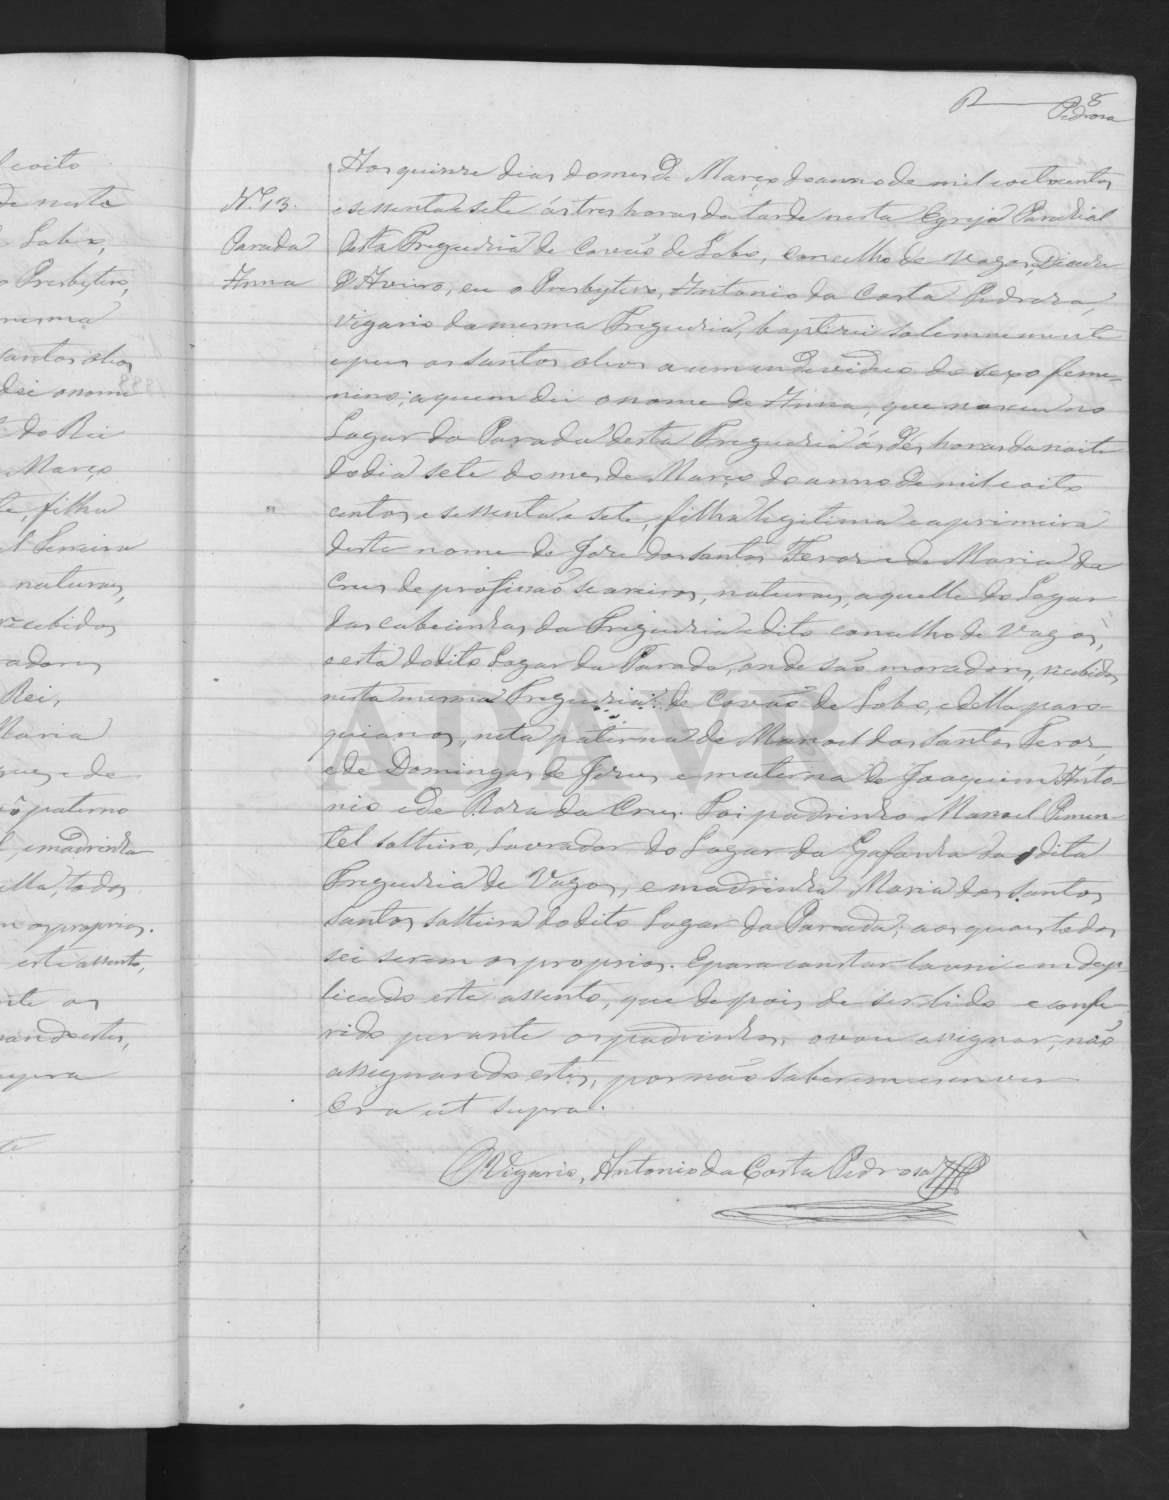 8
Pedrosa
l e oito
de nesta
Lobo,
o Presbytero,
mesma
santos oleos
dei o nome
do Rei
Março
te, filha
Ferreira
naturaes,
recebidos
adores
Rei,
Maria
ques, e de
vô paterno
l, e madrinha
ella, todos
m os proprios.
este assento,
nte os
nando estes,
supra
N.º 13.
Parada
Anna
Aos quinze dias do mes de Março do anno de mil e oitocentos
e sessenta e sete ás tres horas da tarde nesta Egreja Parochial
desta Freguezia de Covão de Lobo, concelho de Vagos, Diocese
d'Aveiro, eu o Presbytero, Antonio da Costa Pedroza,
Vigario da mesma Freguezia, baptizei solemnemente
e puz os santos oleos a um individuo do sexo feme-
nino; a quem dei o nome de Anna, que nasceu no
Lugar da Parada desta Freguezia ás dés horas da noite
do dia sete do mes de Março do anno de mil e oito
centos e sessenta e sete, filha legitima e a primeira
deste nome de Joze dos Santos Feros e de Maria da
Crus de profissão seareiros, naturaes, aquelle do Lugar
das cabecinhas da Freguezia e dito concelho de Vagos,
e esta do dito Lugar da Parada, onde são moradores, recebidos
nesta mesma Freguezia de Covão de Lobo, e della paro-
quianos, neta paterna de Manoel dos Santos Feros
e de Domingas de Jezus, e materna de Joaquim Anto-
nio e de Roza da Crus. Foi padrinho Manoel Pimen-
tel solteiro, Lavrador do Lugar da Gafanha da dita
Freguezia de Vagos, e madrinha Maria dos Santos
Santos solteira do dito Lugar da Parada; aos quaes todos
sei serem os proprios. E para constar lavrei em dup-
licado este assento, que depois de ser lido e confe-
rido perante os padrinhos, o vou assignar, não
assignando estes, por não saberem escrever
Era ut supra.
O Vigario, Antonio da Costa Pedrosa
ADAVR